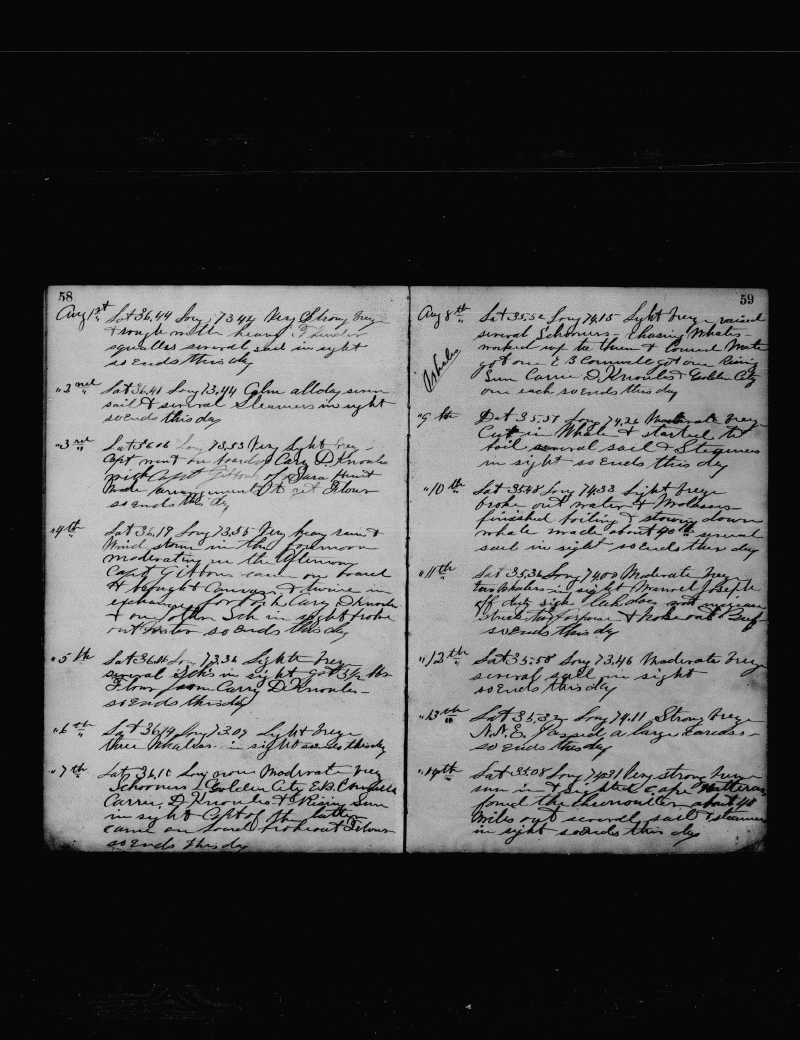 58
Aug 1st Lat 36,44 Long, 73 44 Very Strong breze
& rough with heavy Thunder
squalles several sail in sight
so ends this day
"2nd Lat 36,41 Long 73,44 Calm all day seven
sail & several Steamers in sight
so ends this day
"3rd Lat 36 06 Long 73,53 Very light brez
Capt went on board of Cary D. Knowles
with Capt Gibbons of Sara Hunt
made arrangement to get Flour
so ends this day
"4th Lat 36,19 Long 73,55 Very heavy rain &
Wind storm in the fournoon
moderating in the afternoon
Capt Gibbons came on board
& brought Canvas & twine in
exchange for Pork Cary D Knowles
& one other Sch in sight broke
out so ends this day
"5th Lat Long 73,36 Lighte brez
several Schs in sight got 3½ bbs
Flour from Carry D. Knowles
so ends this day
"6th Lat 36,19 Long 73.07 Light breze
three Whalers in sight so ends this day
"7th Lat, 36,10 Long none Maderate brez
Schooners Golden City E.B. Conwell
Carrie, D. Knowles & Rising Sun
in sight Capt of the latter
came on board broke out Flour
so ends this day
59
Aug 8th Lat 35,52 Long 74,15 Light breze raised
several Schooners chasing Whales
worked up to them & lowred Mate
got one E B Conwell got one Rising
Sun Carrie D. Knowles & Golden City
one each so ends this day
Whales
"9th Lat 35.57 Long 74,26 Moderate breze
Cut in Whale & started to
boil several sail & Steamers
in sight so ends this day
"10th Lat 35.48 Long 74.33 Light breze
broke out water & Molasses
finished boiling & stowing down
whale made about 40 bb several
sail in sight so ends this day
"11th Lat 35,36 Long 74,00 Moderate brez
two Whalers in sight Manuel Joseph
off duty sick
struck two porpose & broke out Beef
so ends this day
"12th Lat 35.58 Long 73.46 Maderate breze
several sail in sight
so ends this day
"13th Lat 35,32 Long 74.11 Strong breze
N.N.E. passed a large carcass
so ends this day
"14th Lat 35.08 Long 74,31 Very strong breze
run in & sighted Cape Hatteras
found the chronomiter about 40
Miles out several sail & steamer
in sight so ends this day